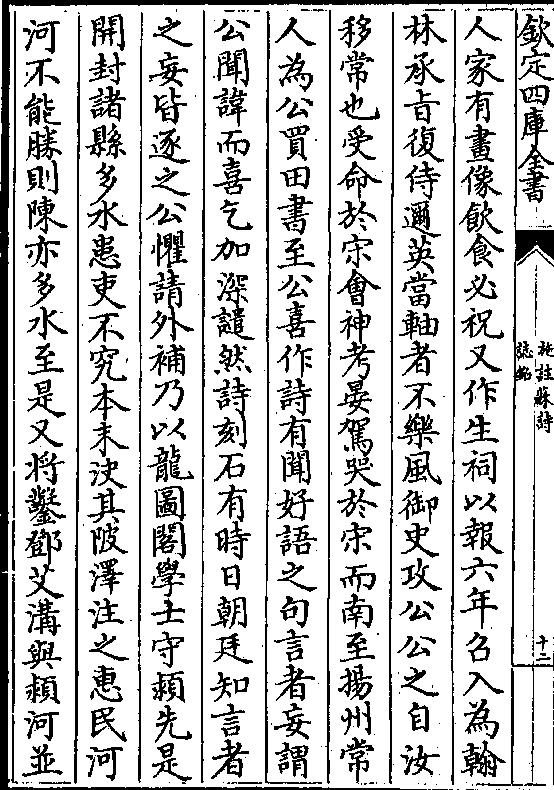 欽定四庫全書
施註蘇詩
誌銘
十二
人家有畫像飲食必祝又作生祠以報六年召入為翰
林承旨復侍邇英當軸者不樂風御史攻公公之自汝
移常也受命於宋會神考晏駕哭於宋而南至揚州常
人為公買田書至公喜作詩有聞好語之句言者妄謂
公聞諱而喜乞加深譴然詩刻石有時日朝廷知言者
之妄皆逐之公懼請外補乃以龍圖閣學士守潁先是
開封諸縣多水患吏不究本末決其陂澤注之惠民河
河不能勝則陳亦多水至是又將鑿鄧艾溝與潁河並